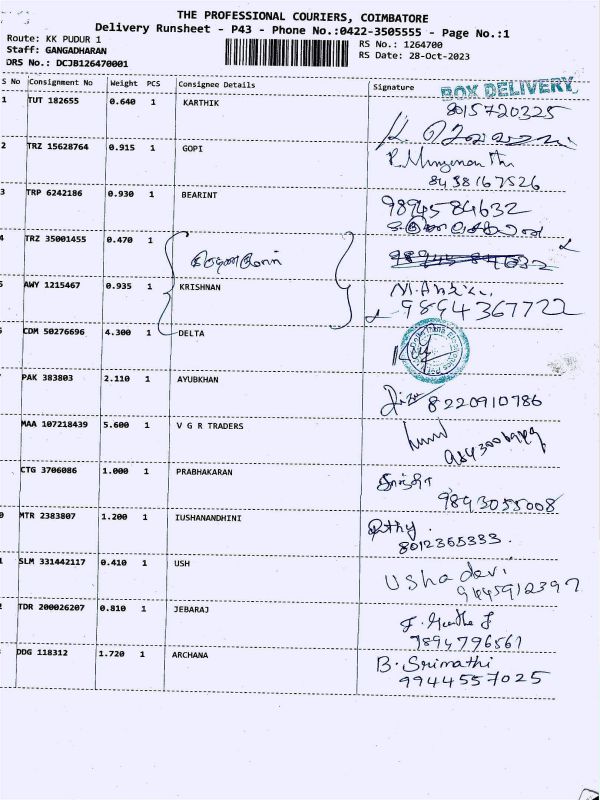 THE PROFESSIONAL COURIERS, COIMBATORE
Delivery Runsheet - P43 - Phone No.:0422-3505555 - Page No.:1
Route: KK PUDUR 1
RS No.: 1264700
Staff: GANGADHARAN
RS Date: 28-Oct-2023
DRS No.: DCJB126470001
S No Consignment No Weight PCS Consignee Details Signature
BOX DELIVERY
1 TUT 182655 0.640 1 KARTHIK 8015720325
2 TRZ 15628764 0.915 1 GOPI
8438167526
3 TRP 6242186 0.930 1 BEARINT 9894584632
4 TRZ 35001455 0.470 1
AWY 1215467 0.935 1 KRISHNAN
9894367722
CDM 50276696 4.300 1 DELTA
PAK 383803 2.110 1 AYUBKHAN
8220910786
MAA 107218439 5.600 1 V G R TRADERS
CTG 3706086 1.000 1 PRABHAKARAN
9893055008
MTR 2383807 1.200 1 IUSHANANDHINI
8012365333.
SLM 331442117 0.410 1 USH
Usha devi
TDR 200026207 0.810 1 JEBARAJ
7894796561
DDG 118312 1.720 1 ARCHANA B. Srimathi
9944557025